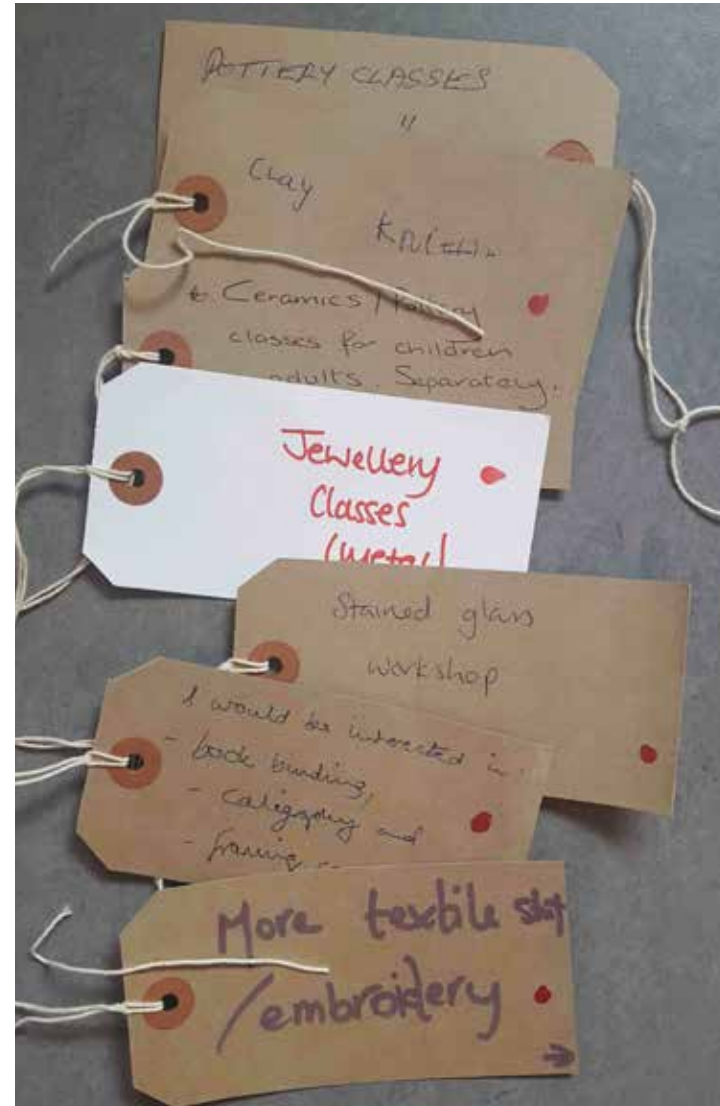 POTTERY CLASSES
"
Clay
& Ceramics / Pottery
classes for children
adults. Separately.
Jewellery
Classes
(metal)
Stained glass
workshop
I would be interested in:
- book binding,
- caligraphy and
- framing
More textile
/embroidery
→